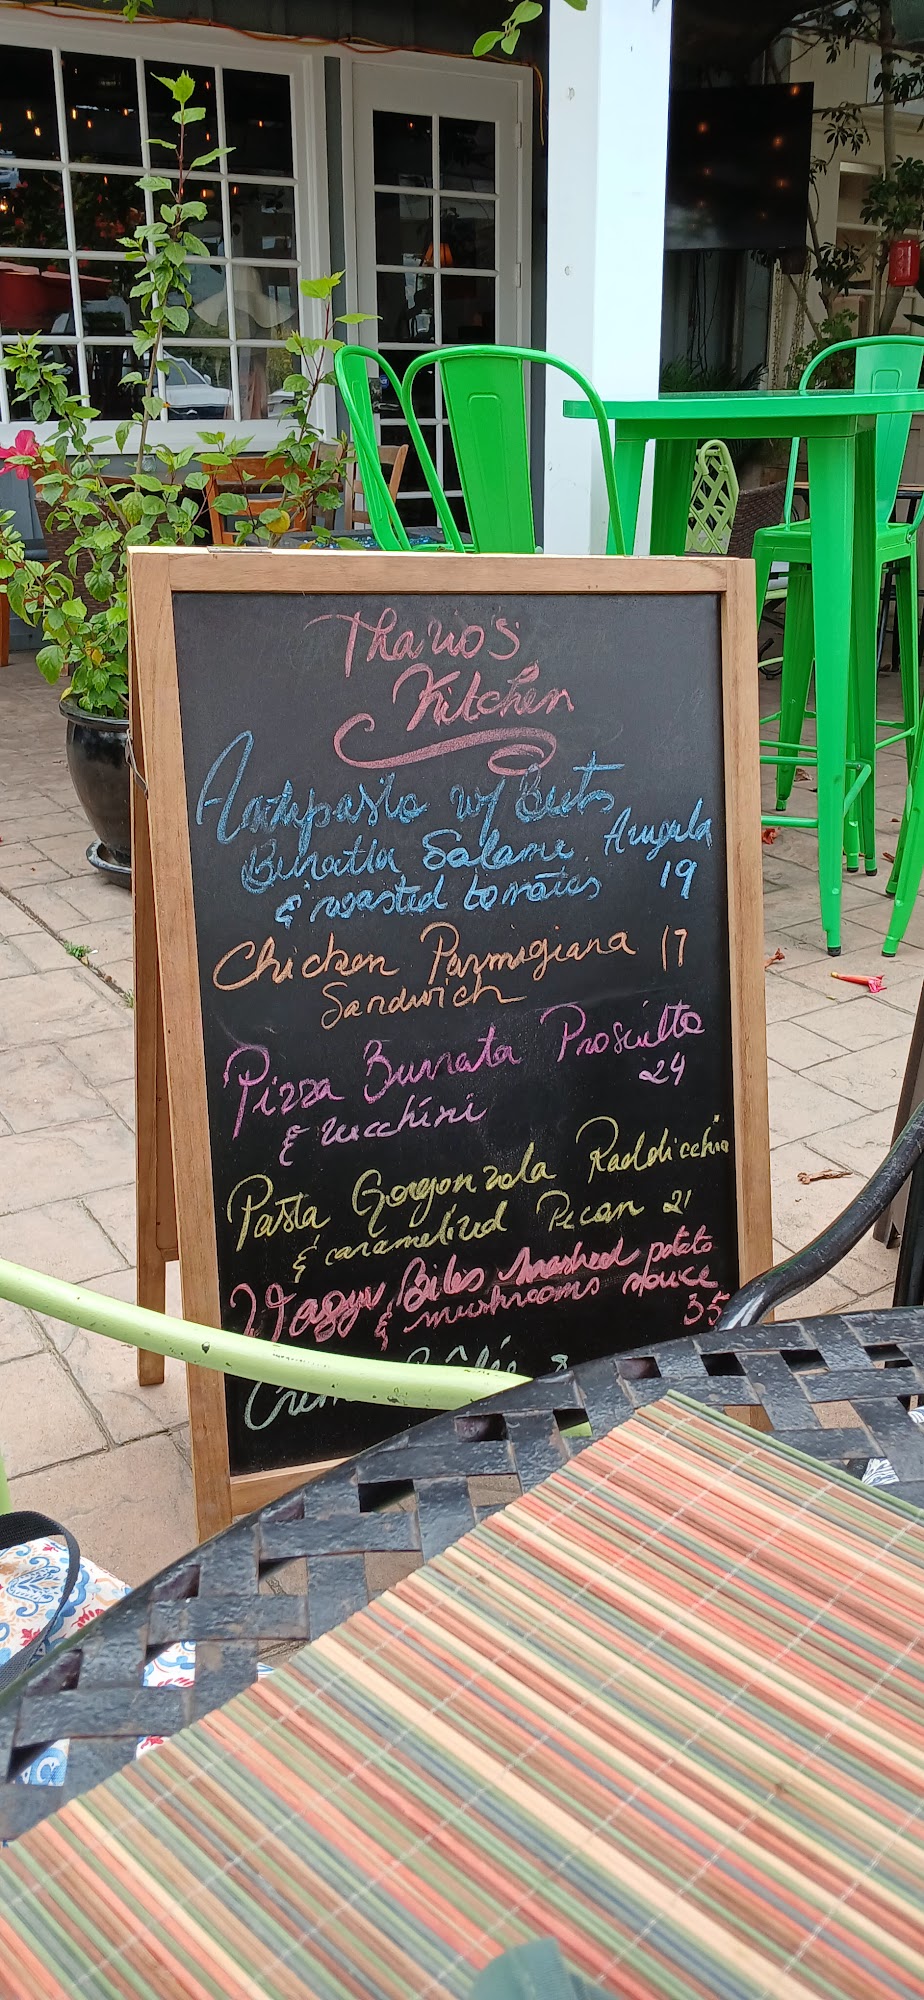 Thario's
Kitchen
Antipasto w/ Beets
Buratta Salami Arugula
& roasted tomatoes 19
Chicken Parmigiana 17
Sandwich
Pizza Burrata Prosciutto
& zucchini 24
Pasta Gorgonzola Raddicchio
& caramelized Pecan 21
Wagyu Bites Mashed potato
& mushrooms sauce 35
Brûlée